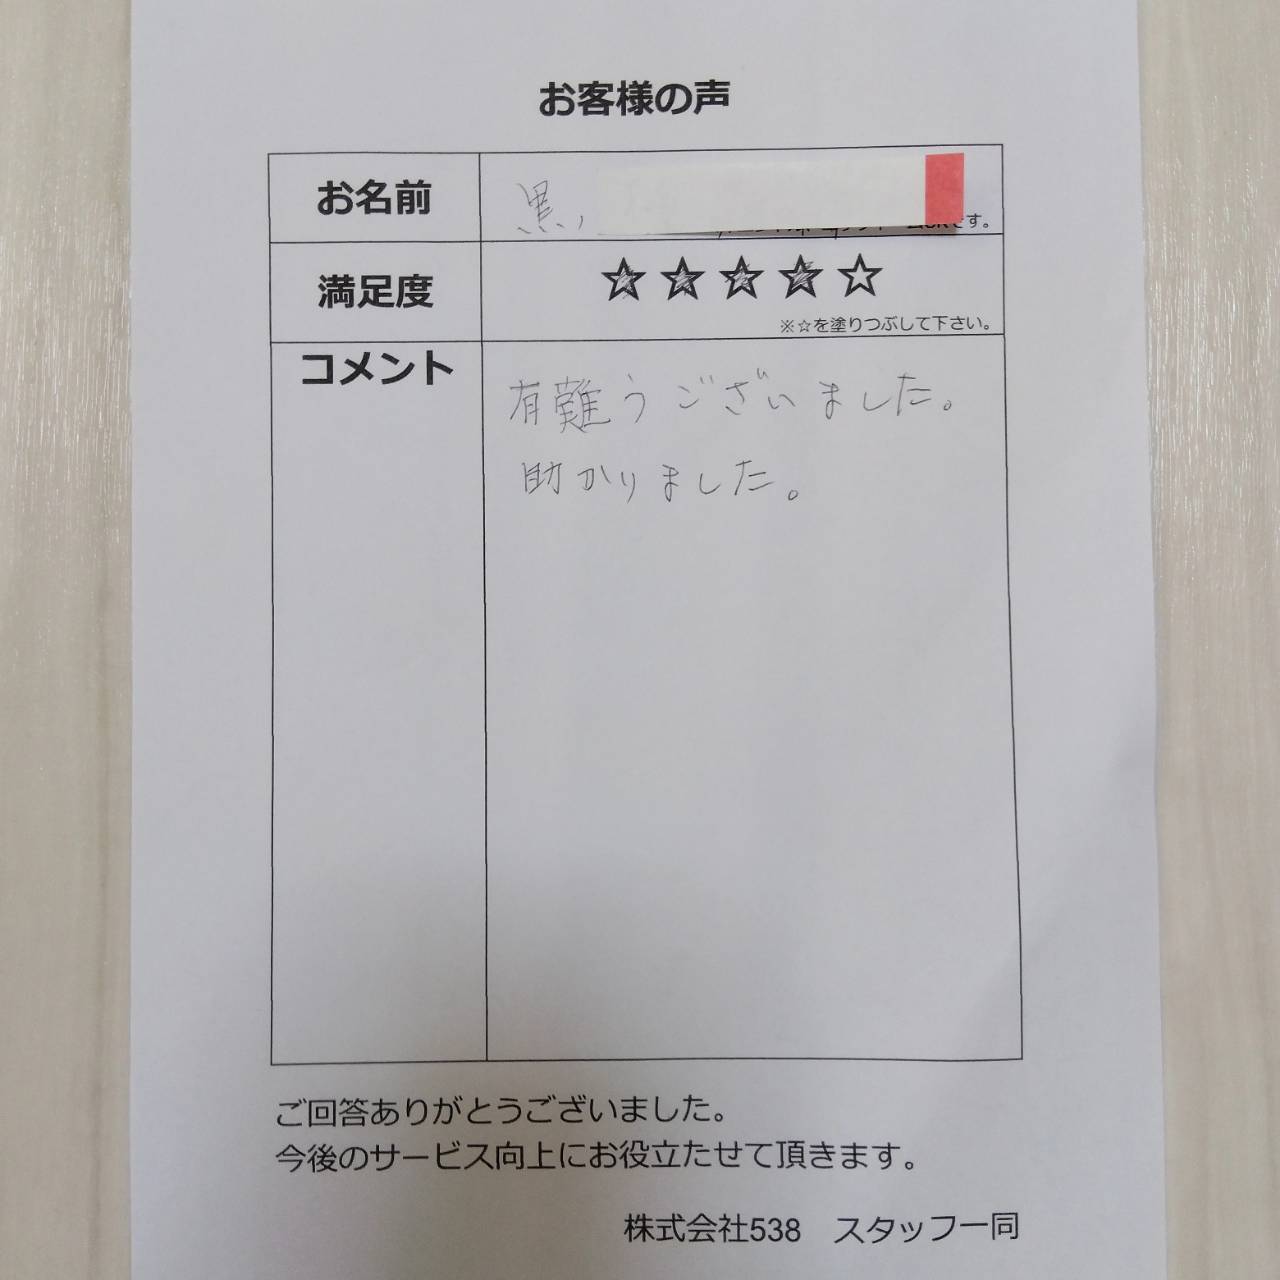 お客様の声
お名前
黒
です。
満足度
★★★★☆
※☆を塗りつぶして下さい。
コメント
有難うございました。
助かりました。
ご回答ありがとうございました。
今後のサービス向上にお役立たせて頂きます。
株式会社538 スタッフ一同